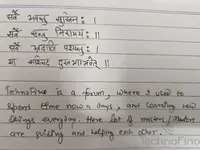 सर्वे भवन्तु सुखिनः ।
सर्वे सन्तु निरामयः ॥
सर्वे भद्राणि पश्यन्तु ।
मा कश्चिद् दुःखभाग्भवेत् ॥
TechnoFino is a forum, where I used to
spend time now a days, and learning new
things everyday. Here lot of members
are guiding and helping each other.
TechnoFino